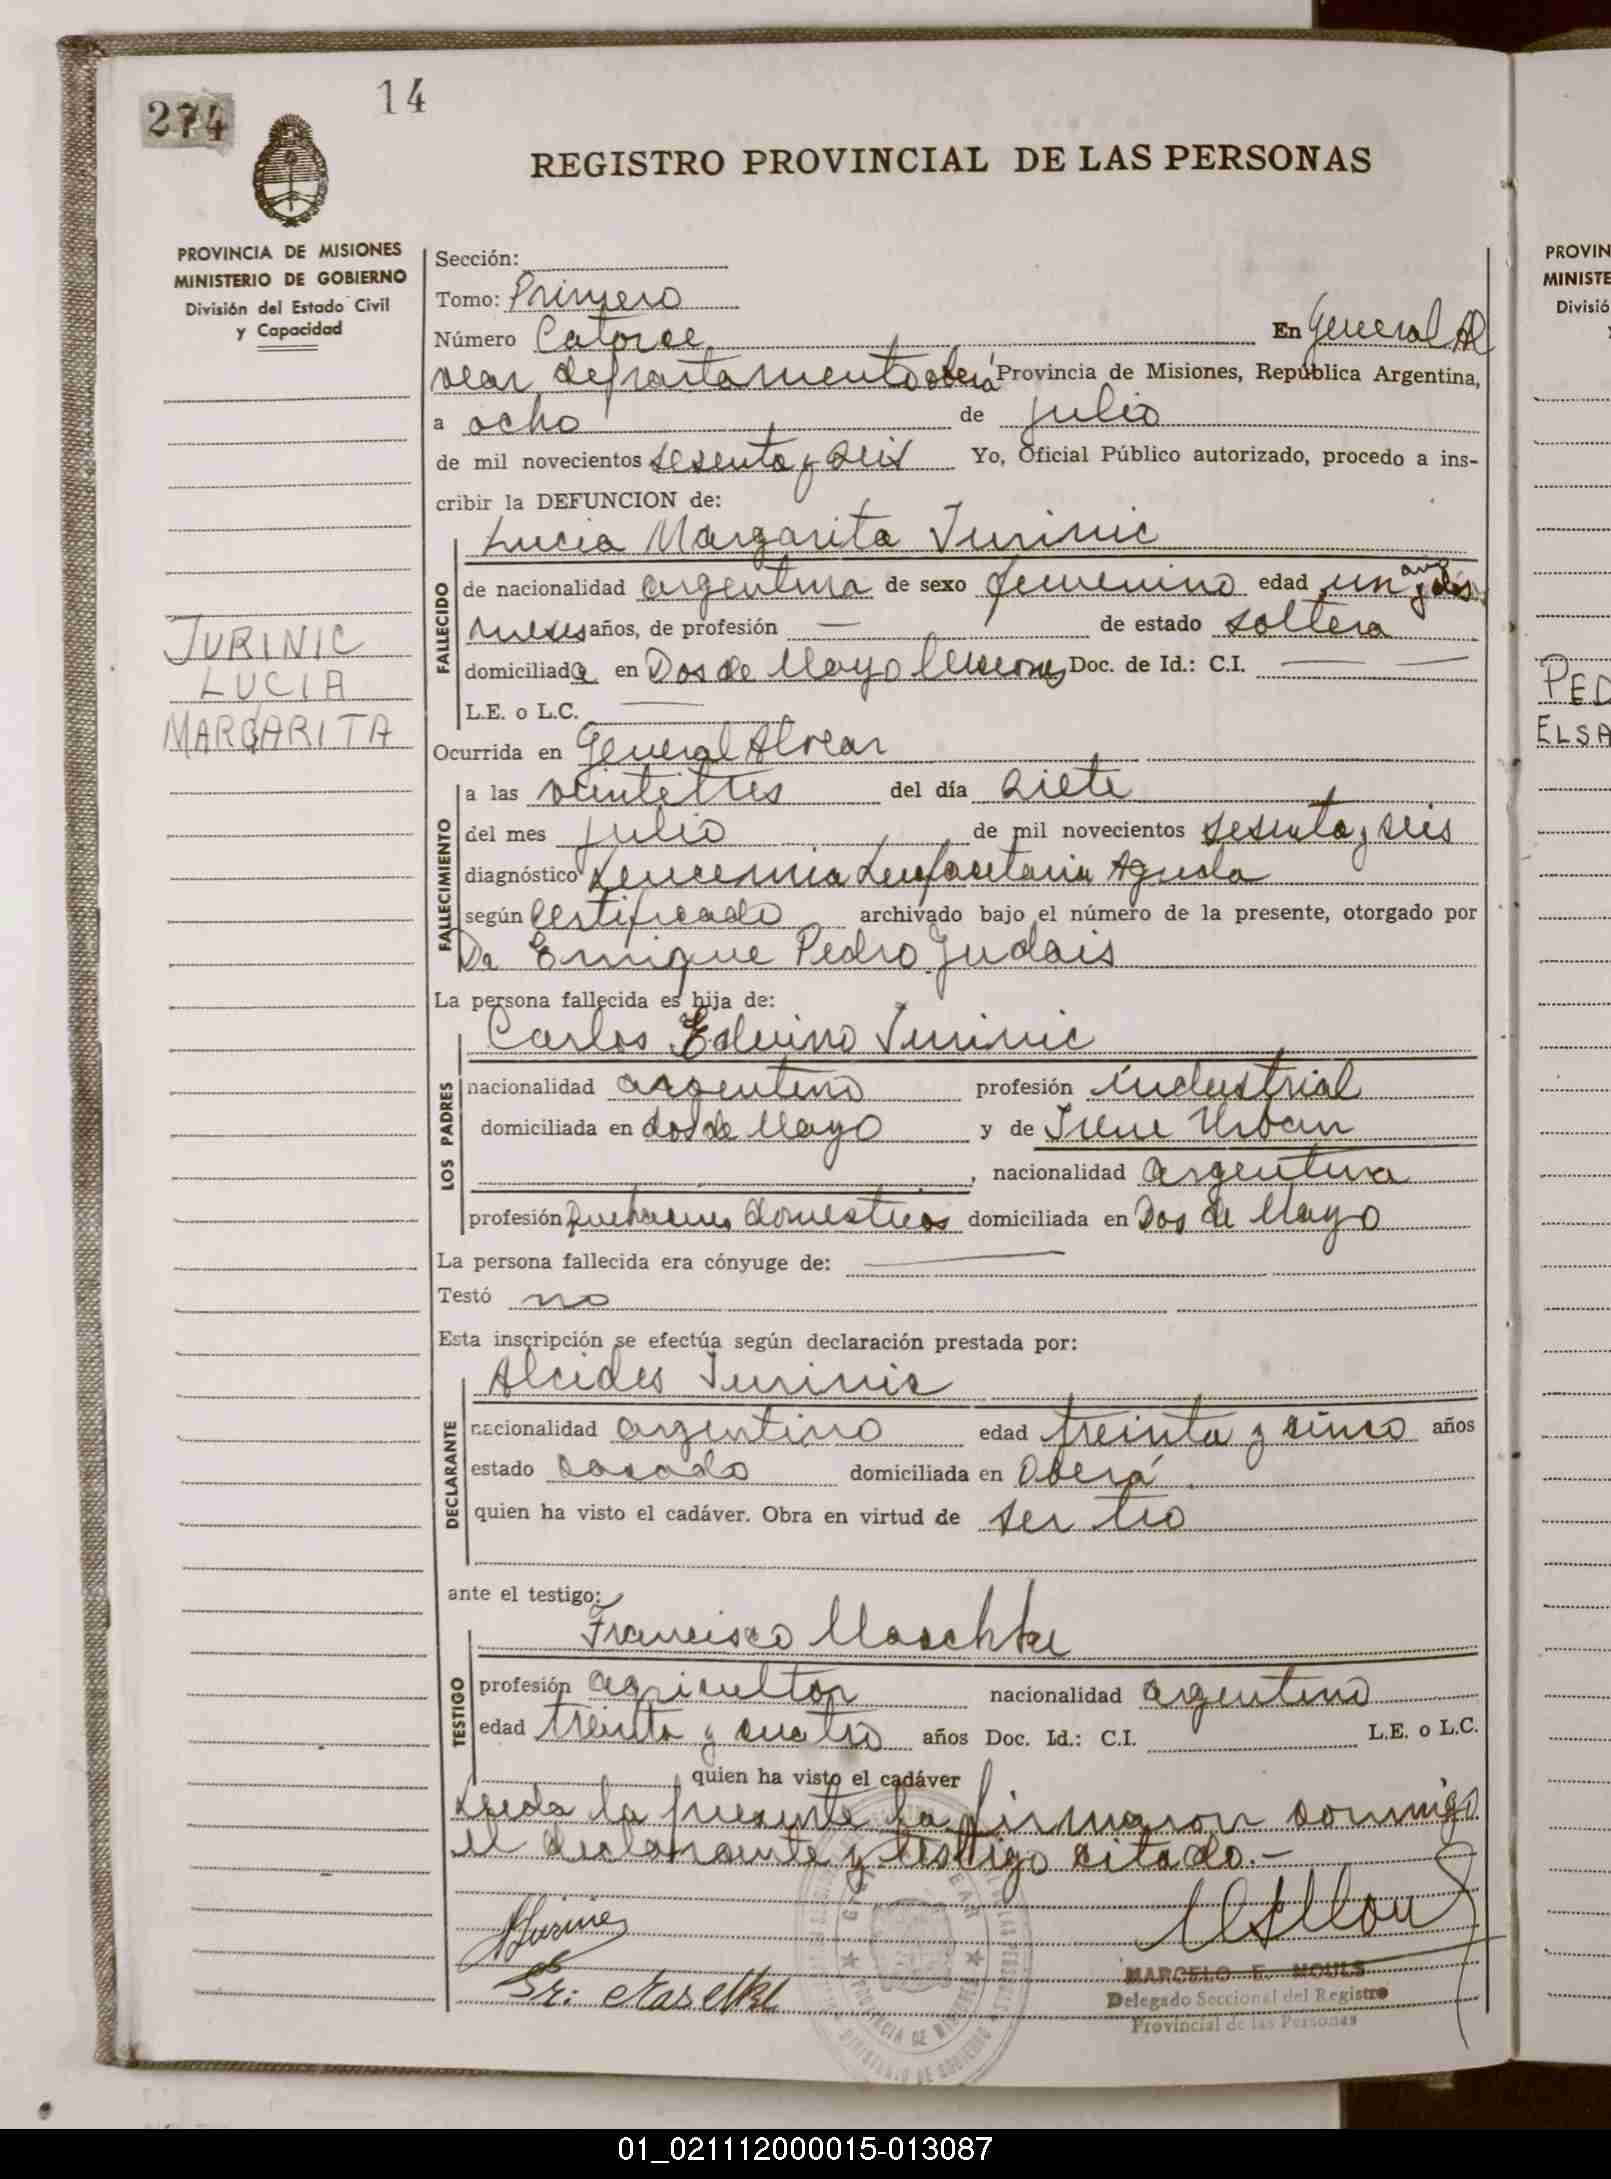 274
14
REGISTRO PROVINCIAL DE LAS PERSONAS
PROVINCIA DE MISIONES
MINISTERIO DE GOBIERNO
División del Estado Civil
y Capacidad
JURINIC
LUCIA
MARGARITA
Sección:
Tomo: Primero
Número Catorce En General Al
vear departamento Oberá Provincia de Misiones, República Argentina,
a ocho de julio
de mil novecientos sesenta y seis Yo, Oficial Público autorizado, procedo a ins-
cribir la DEFUNCION de:
Lucia Margarita Jurinic
FALLECIDO
de nacionalidad argentina de sexo femenino edad un año y dos
meses años, de profesión — de estado soltera
domiciliada en Dos de Mayo Misiones Doc. de Id.: C.I. — —
L.E. o L.C. —
Ocurrida en General Alvear
FALLECIMIENTO
a las veintitres del día siete
del mes julio de mil novecientos sesenta y seis
diagnóstico Leucemia Aguda
según Certificado archivado bajo el número de la presente, otorgado por
Dr Enrique Pedro Judais
La persona fallecida es hija de:
Carlos Edvino Jurinic
LOS PADRES
nacionalidad argentino profesión industrial
domiciliada en dos de Mayo y de Irene Urban
, nacionalidad argentina
profesión Quehaceres domesticos domiciliada en Dos de Mayo
La persona fallecida era cónyuge de: —
Testó no
Esta inscripción se efectúa según declaración prestada por:
Alcides Jurinic
DECLARANTE
nacionalidad argentino edad treinta y cinco años
estado casado domiciliada en Oberá
quien ha visto el cadáver. Obra en virtud de ser tio
ante el testigo:
Francisco Maschke
TESTIGO
profesión agricultor nacionalidad argentino
edad treinta y cuatro años Doc. Id.: C.I. L.E. o L.C.
quien ha visto el cadáver
Leida la presente la firmaron conmigo
el declarante y testigo citado.-
MARCELO E. MOULS
Delegado Seccional del Registro
Provincial de las Personas
PROVINCIA DE MISIONES
MINISTERIO DE GOBIERNO
PROVIN
MINISTE
Divisió
PED
ELSA
01_021112000015-013087